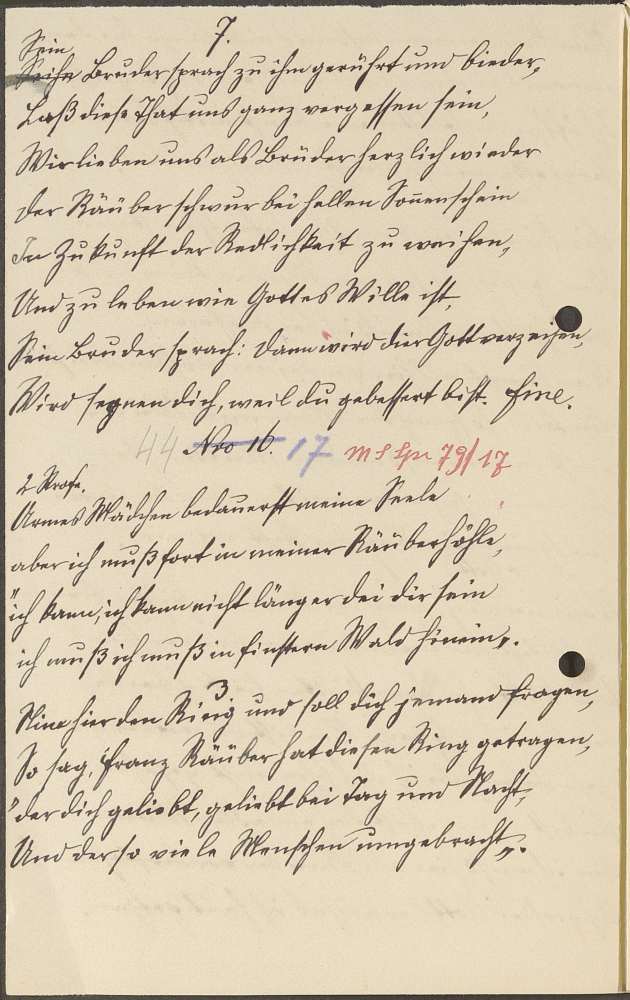 7.
Sein
Seihn Bruder sprach zu ihm gerührt und bieder,
Laß diese That uns ganz vergessen sein,
Wir lieben uns als Brüder herzlich wieder
Der Räuber schwur bei hellen Sonnenschein
In Zukunft der Redlichkeit zu weihen,
Und zu leben wie Gottes Wille ist,
Sein Bruder sprach: dann wird dier Gott verzeihen,
Wird segnen dich, weil du gebessert bist. Fine.
44 Nro 16. 17 79/17
2 Strofe.
Armes Mädchen bedauerst meine Seele
aber ich muß fort in meiner Räuberhöhle,
"ich kann, ich kann nicht länger bei dir sein
ich muß ich muß in finstern Wald hinein,".
3
Nim hier den Ring und soll dich jemand fragen,
So sag, Franz Räuber hat diesen Ring getragen,
"der dich geliebt, geliebt bei Tag und Nacht,
Und der so viele Menschen umgebracht,".